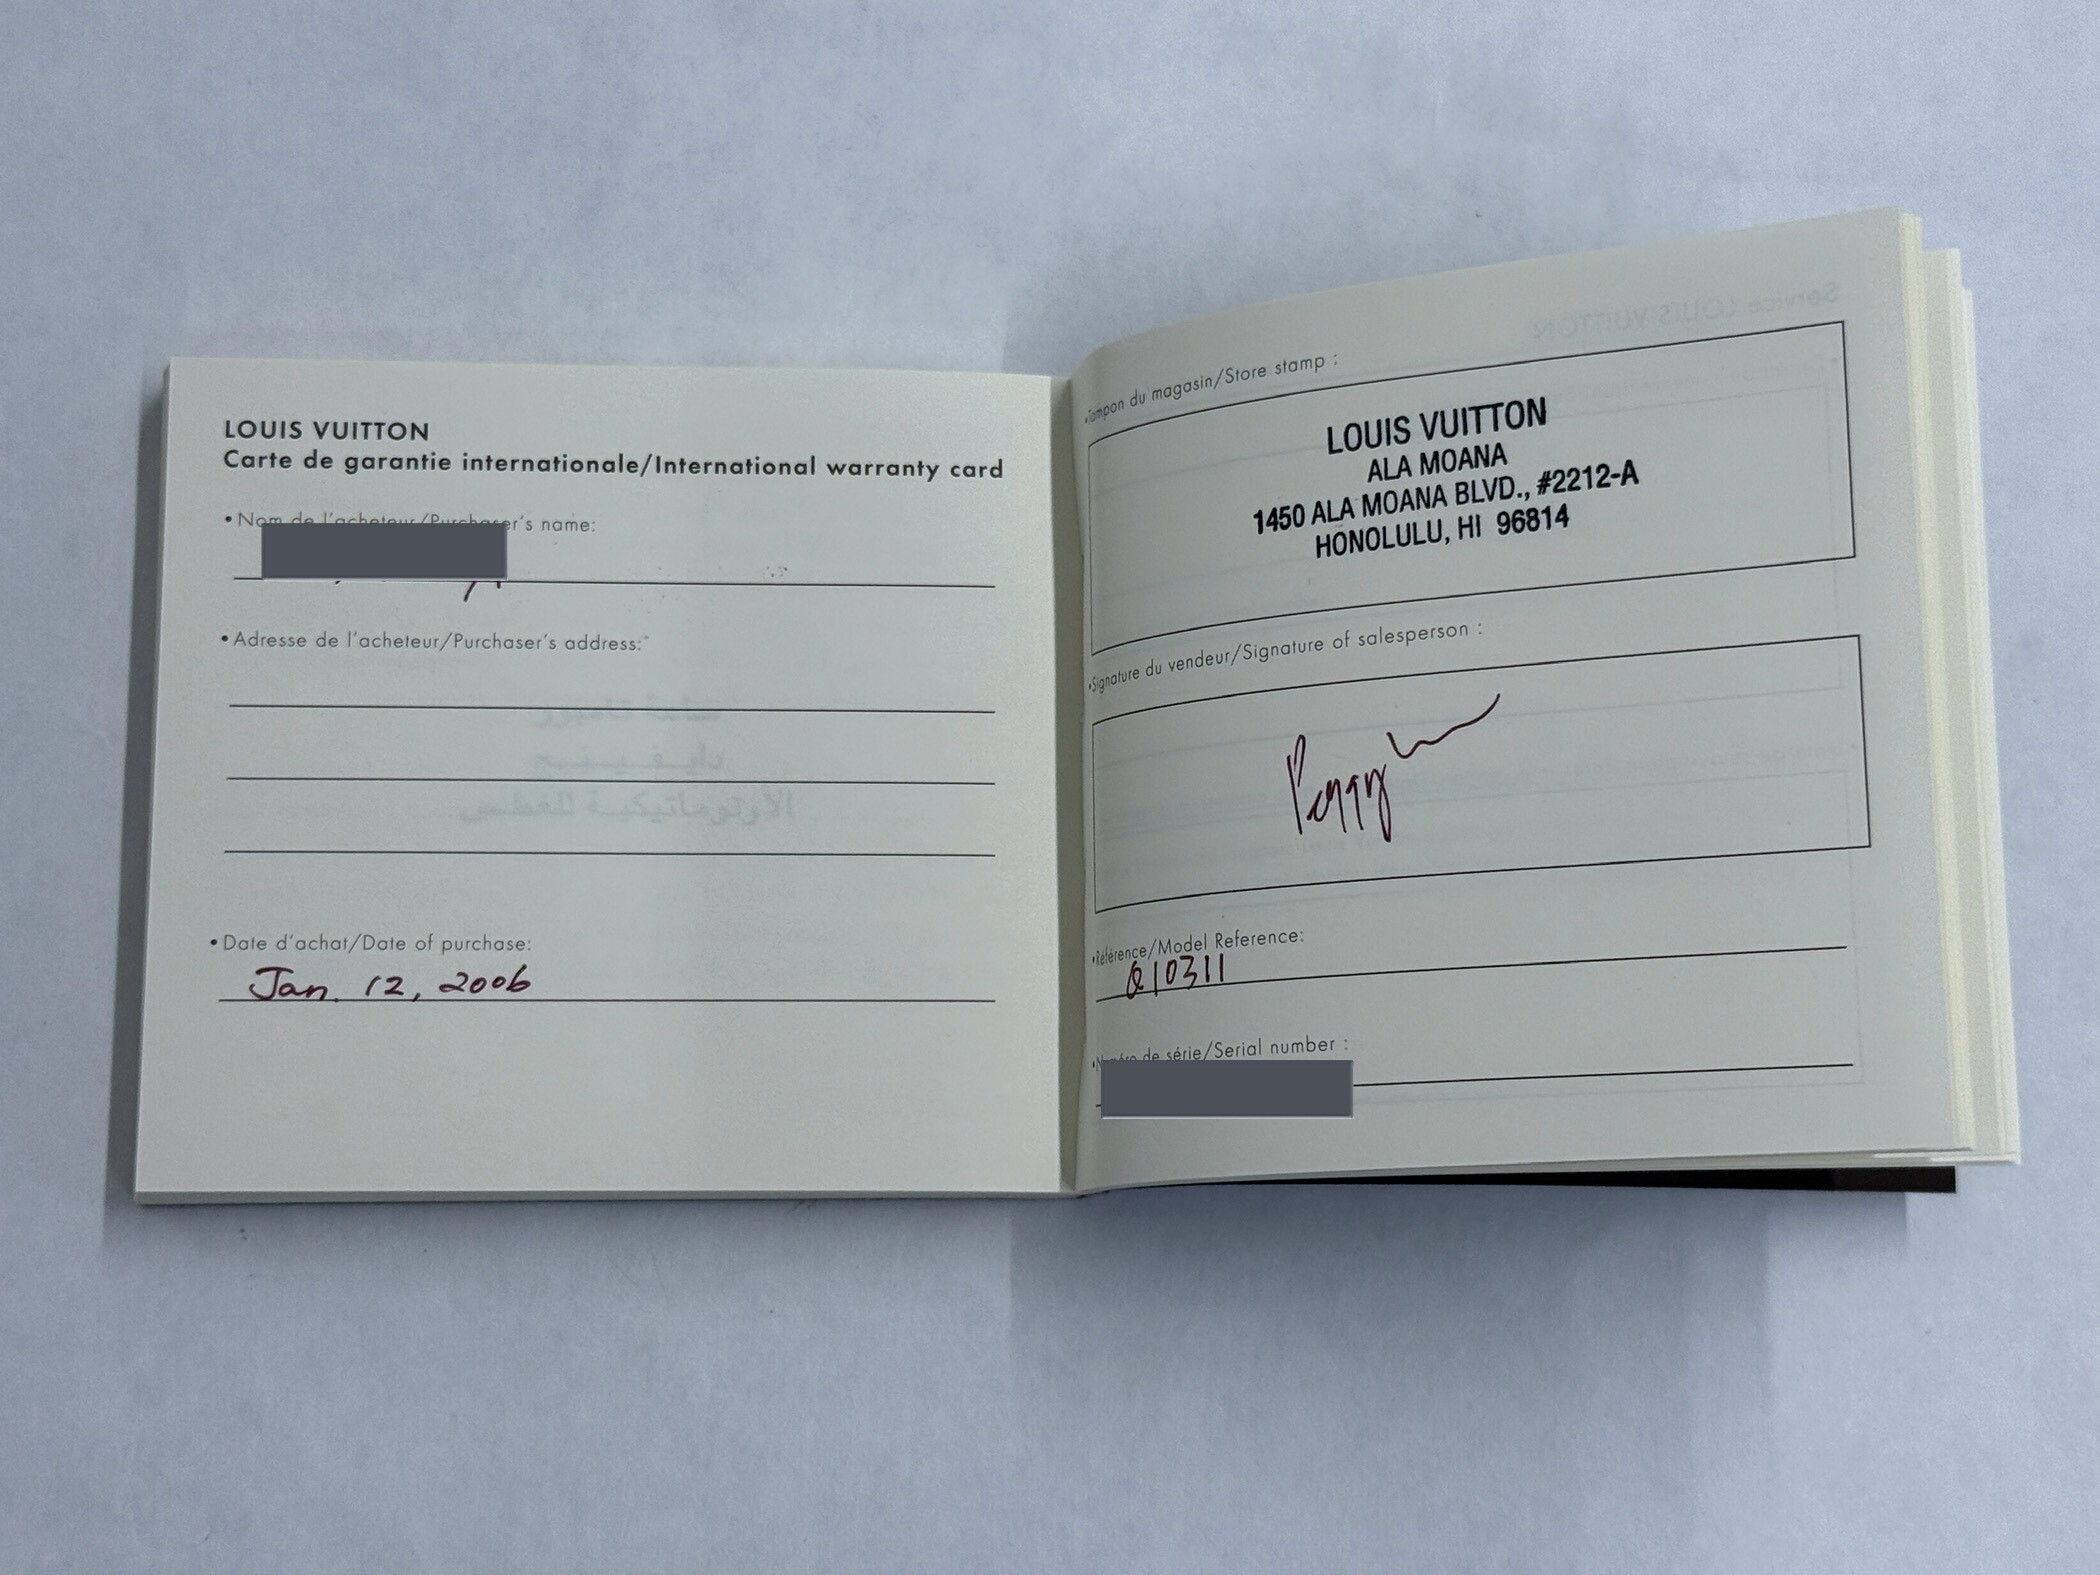 LOUIS VUITTON
Carte de garantie internationale/International warranty card
• Nom de l'acheteur/Purchaser's name:
• Adresse de l'acheteur/Purchaser's address:
• Date d'achat/Date of purchase:
Jan. 12, 2006
Service LOUIS VUITTON
•Tampon du magasin/Store stamp :
LOUIS VUITTON
ALA MOANA
1450 ALA MOANA BLVD., #2212-A
HONOLULU, HI 96814
•Signature du vendeur/Signature of salesperson :
Peggy
•Référence/Model Reference:
Q10311
•Numéro de série/Serial number :